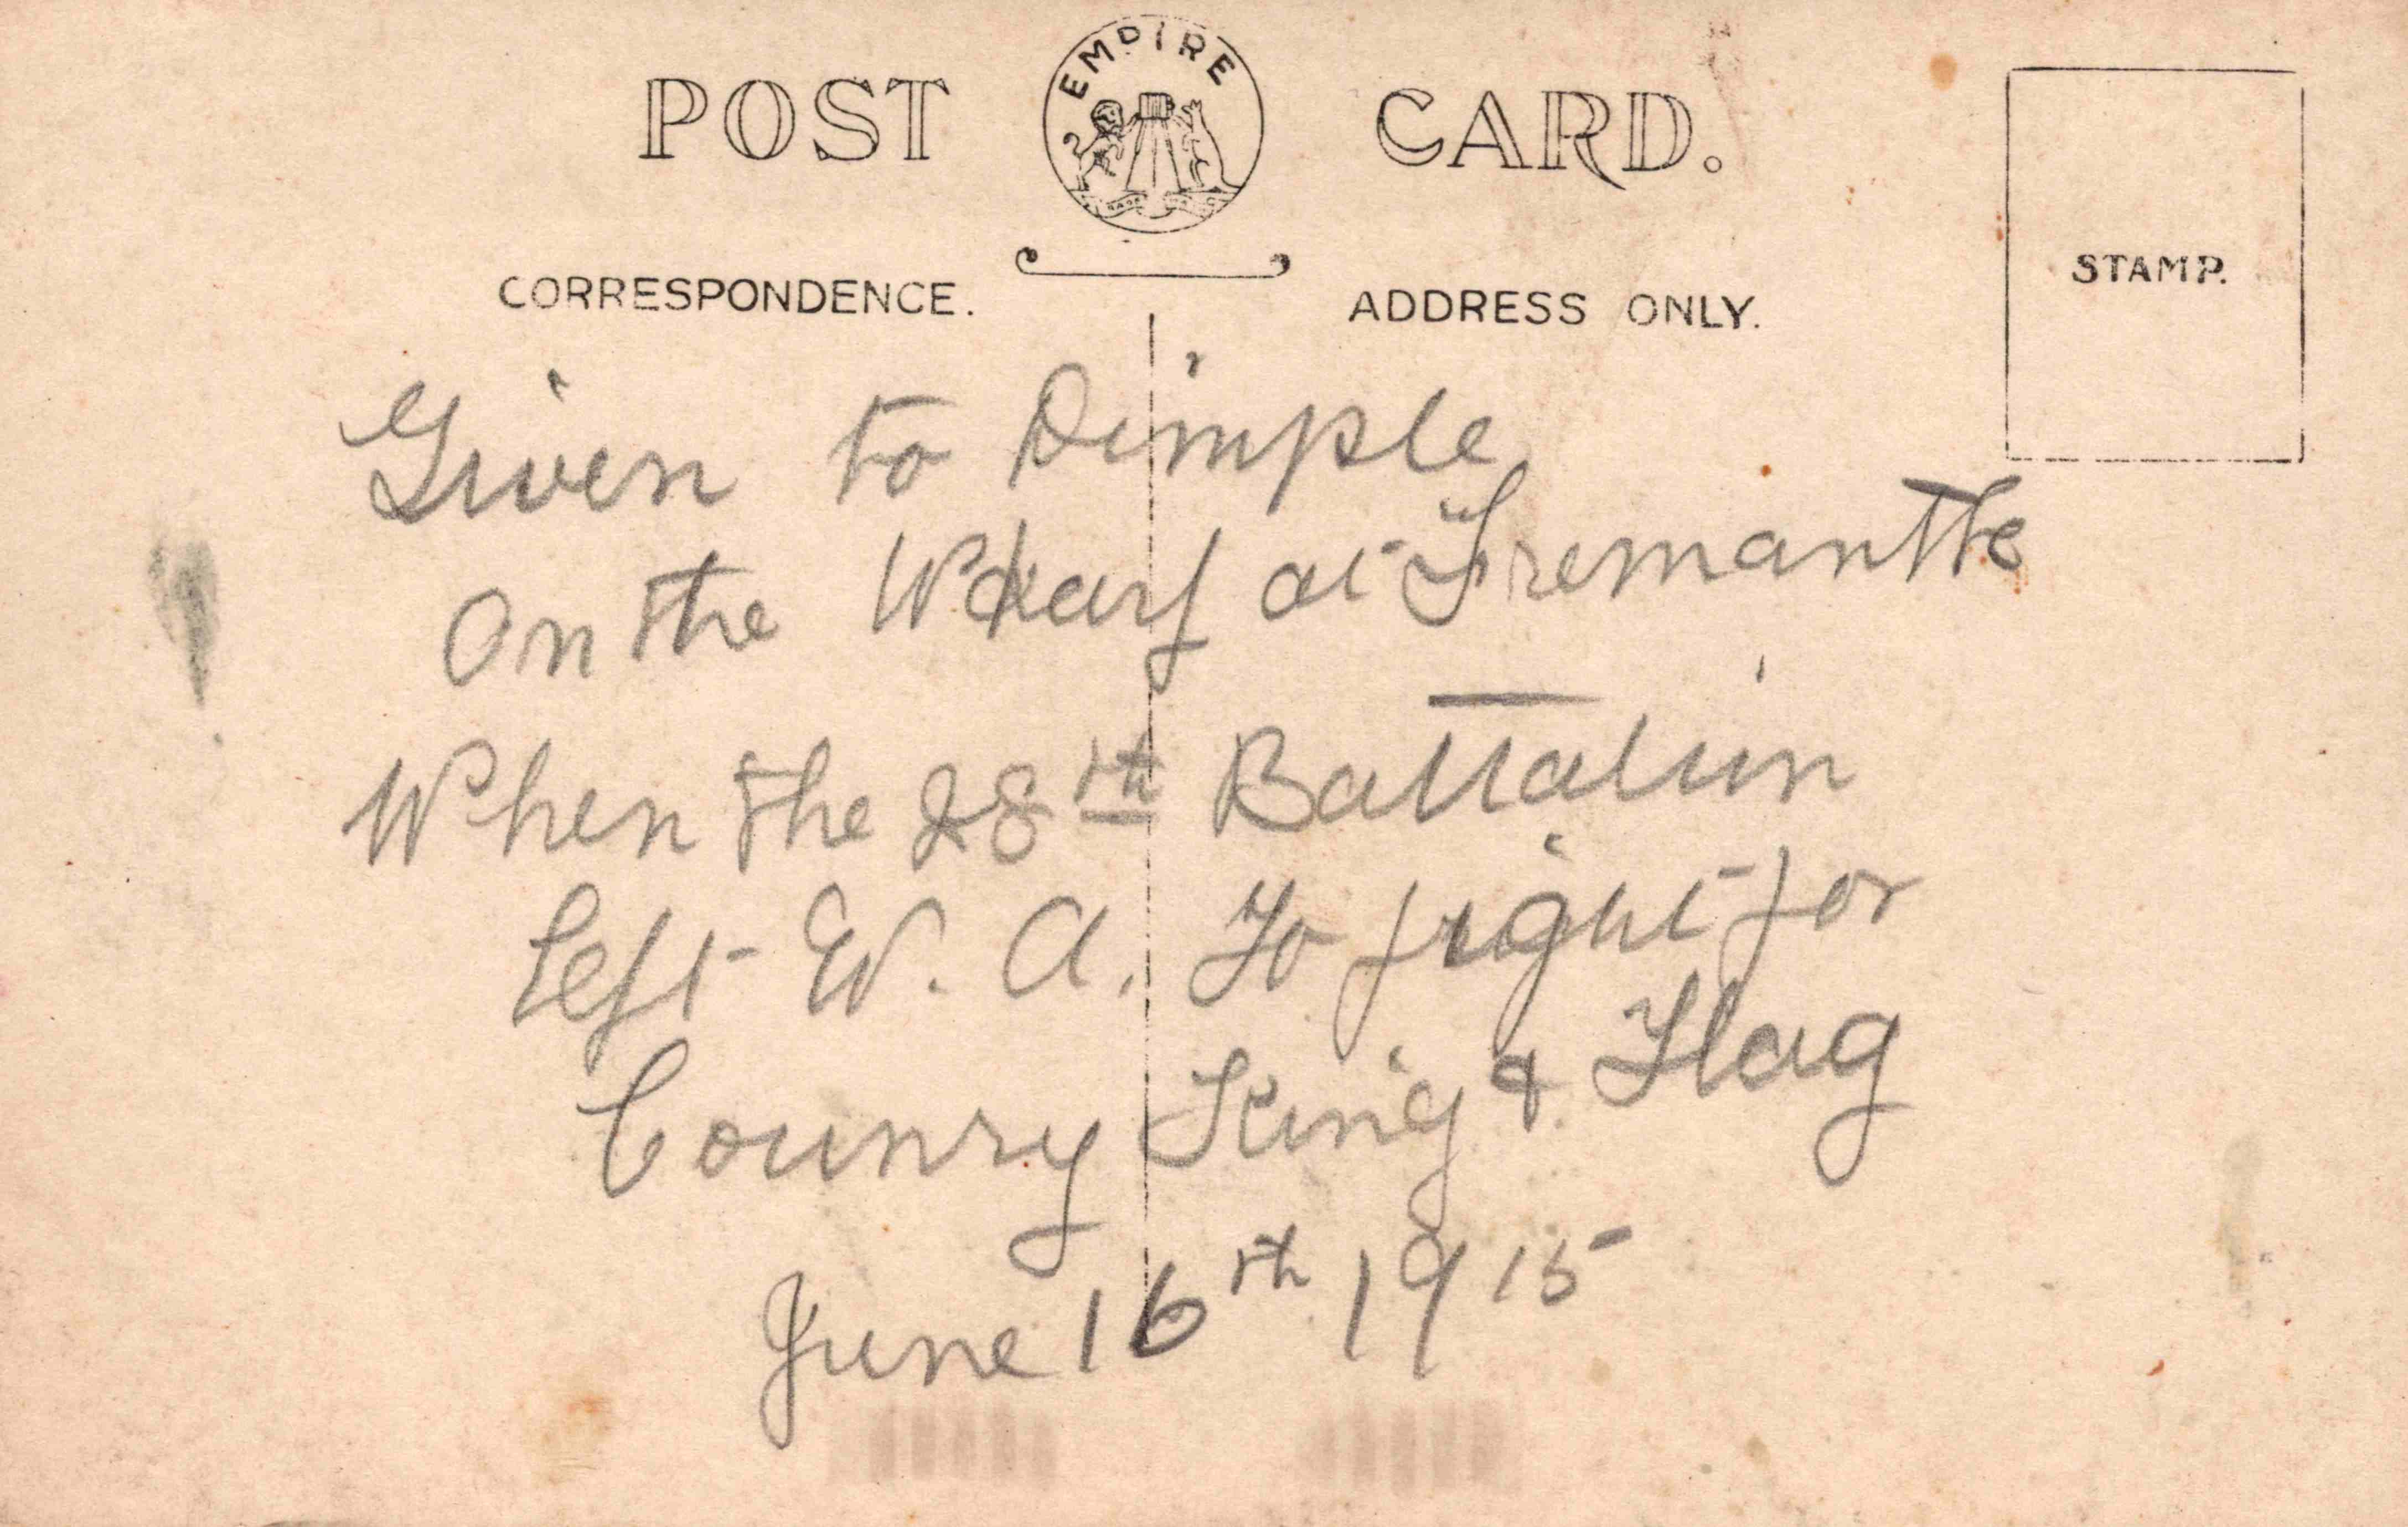 POST CARD.
EMPIRE
CORRESPONDENCE.
ADDRESS ONLY.
STAMP.
Given to Dimple
On the Wharf at Fremantle
When the 28th Battalion
Left W. A. To fight for
Counry King & Flag
June 16th 1915